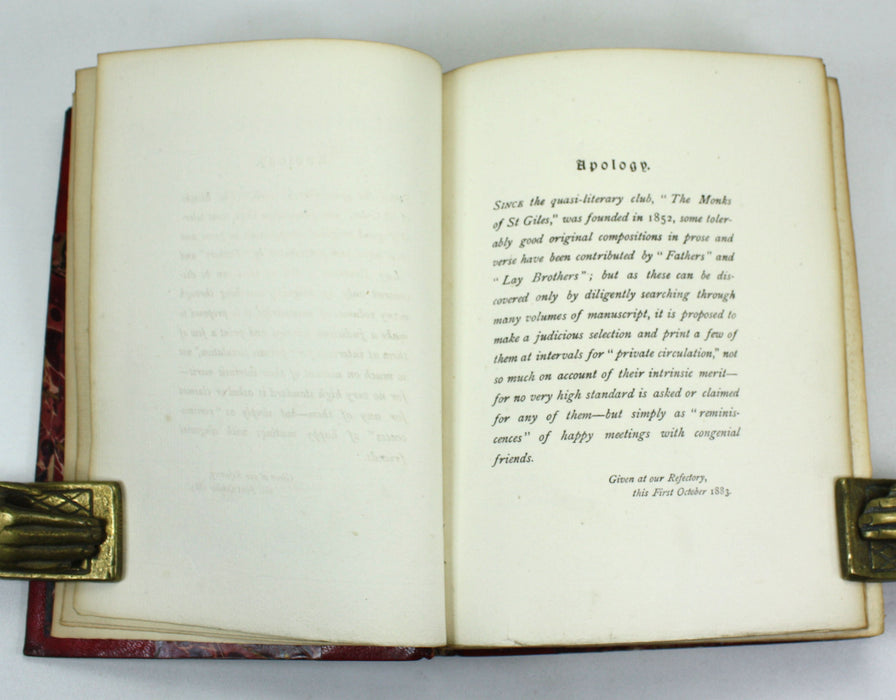 Apology.
SINCE the quasi-literary club, "The Monks
of St Giles," was founded in 1852, some toler-
ably good original compositions in prose and
verse have been contributed by "Fathers" and
"Lay Brothers"; but as these can be dis-
covered only by diligently searching through
many volumes of manuscript, it is proposed to
make a judicious selection and print a few of
them at intervals for "private circulation," not
so much on account of their intrinsic merit—
for no very high standard is asked or claimed
for any of them—but simply as "reminis-
cences" of happy meetings with congenial
friends.
Given at our Refectory,
this First October 1883.